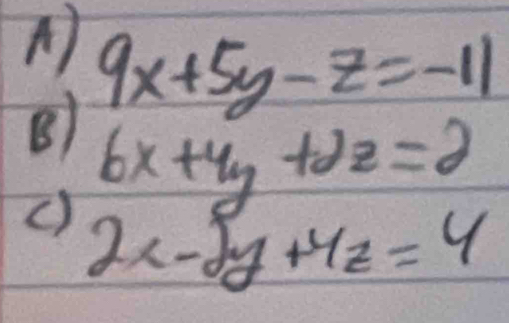 A) 9x+5y-z=-11
B) 6x+4y+2z=2
C) 2x-2y+4z=4